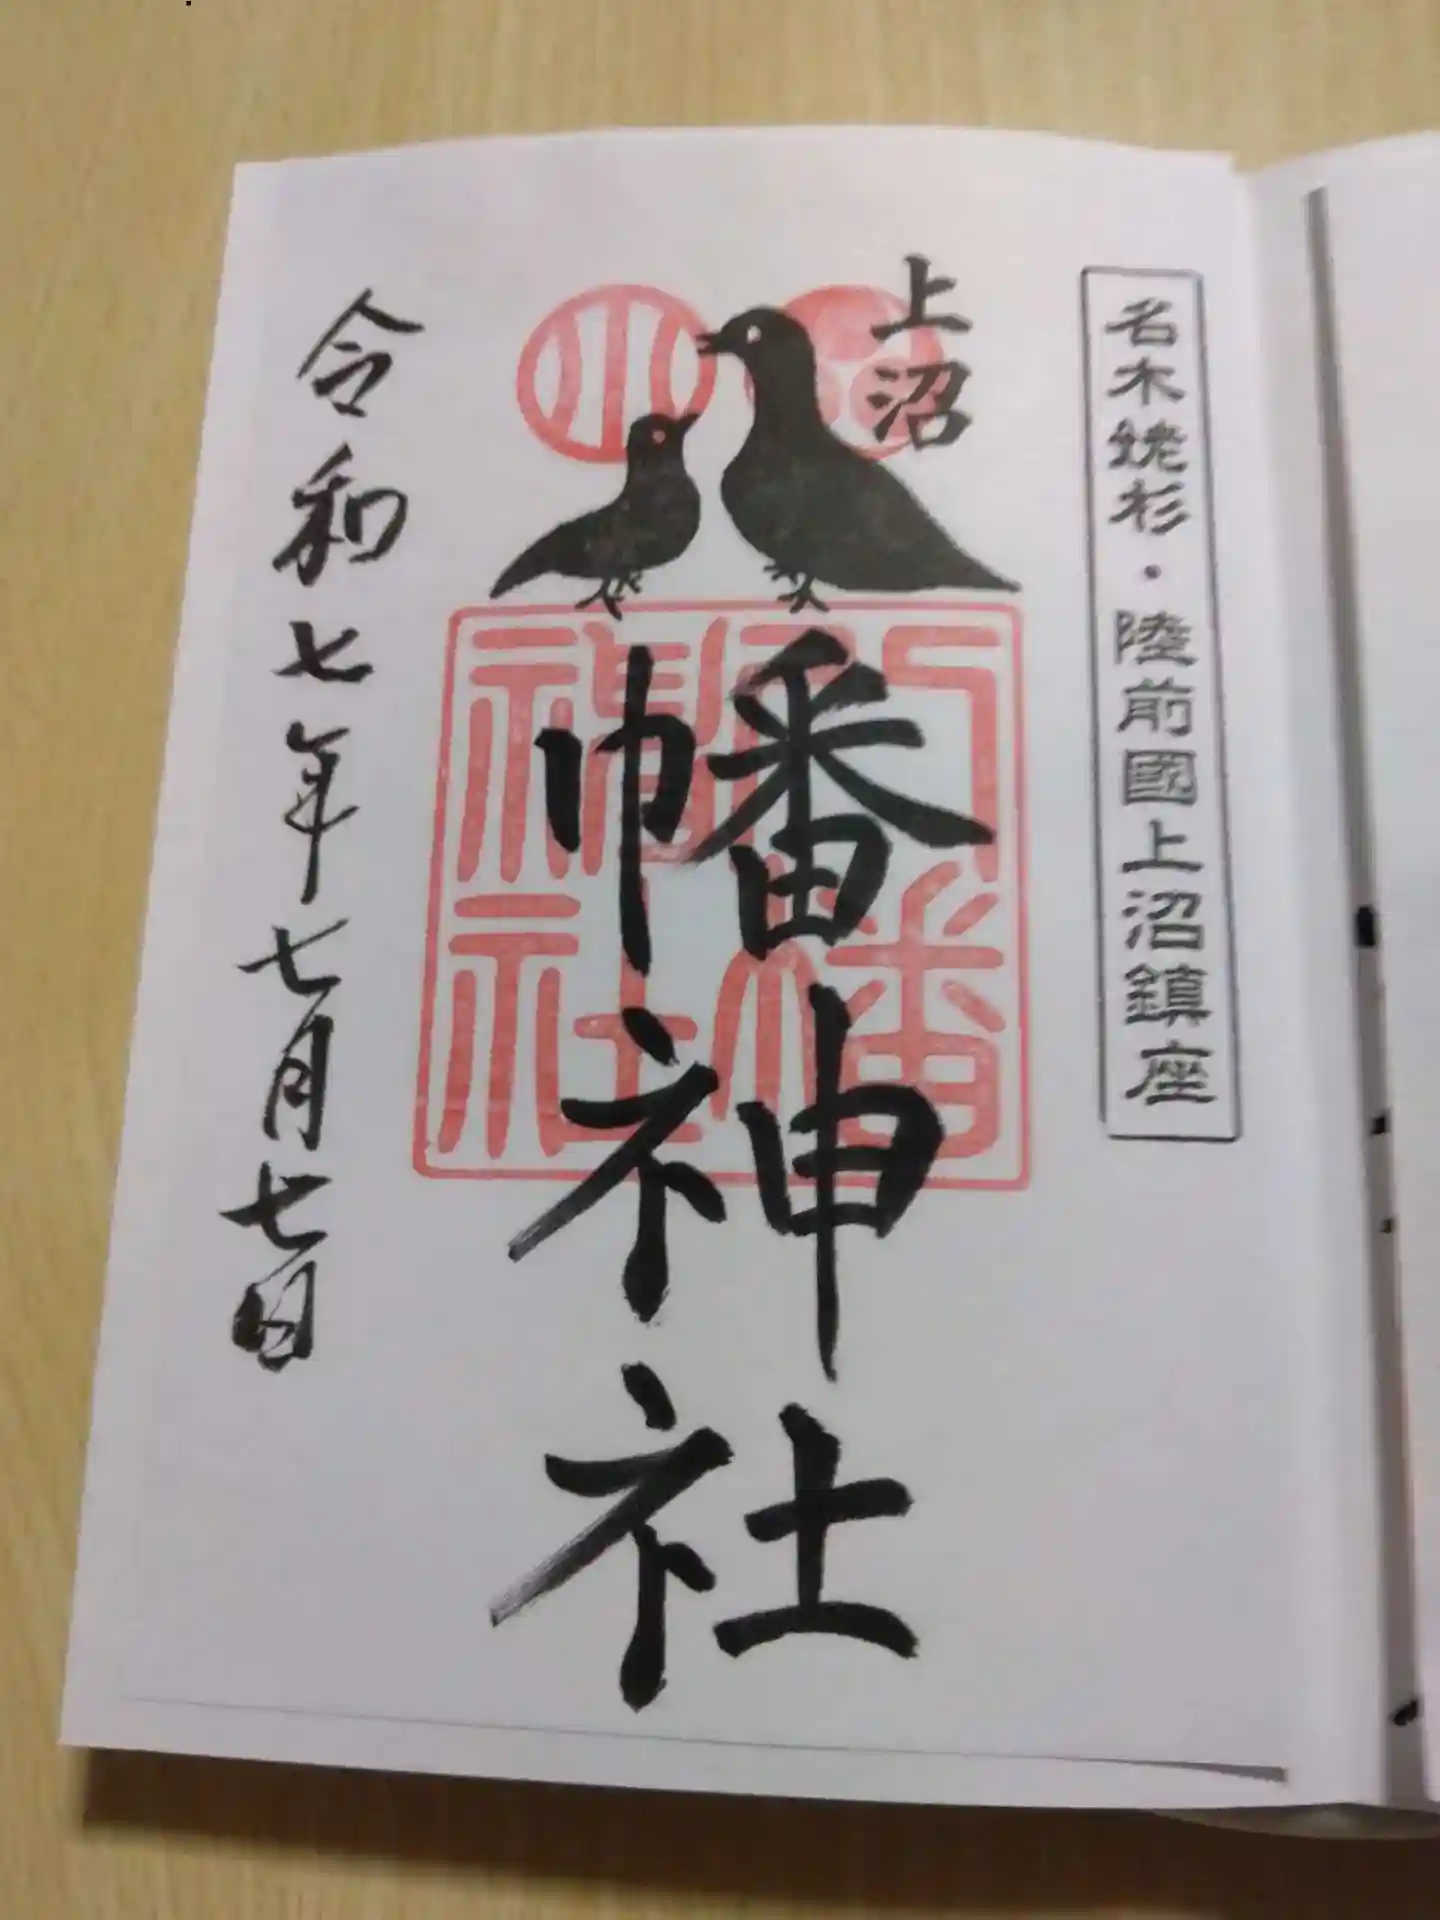 名木姥杉・陸前國上沼鎮座
上沼
幡神社
八幡
神社
令和七年七月七日